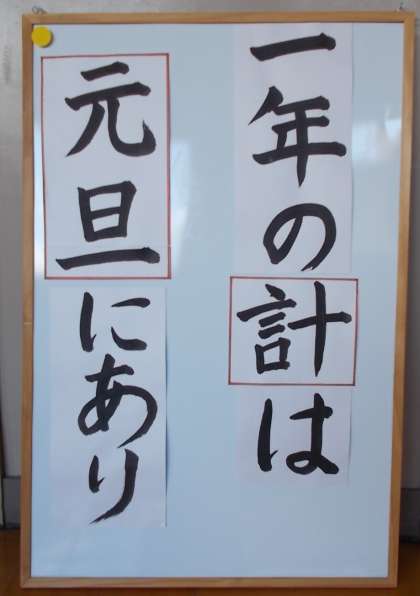 一年の計は
元旦にあり